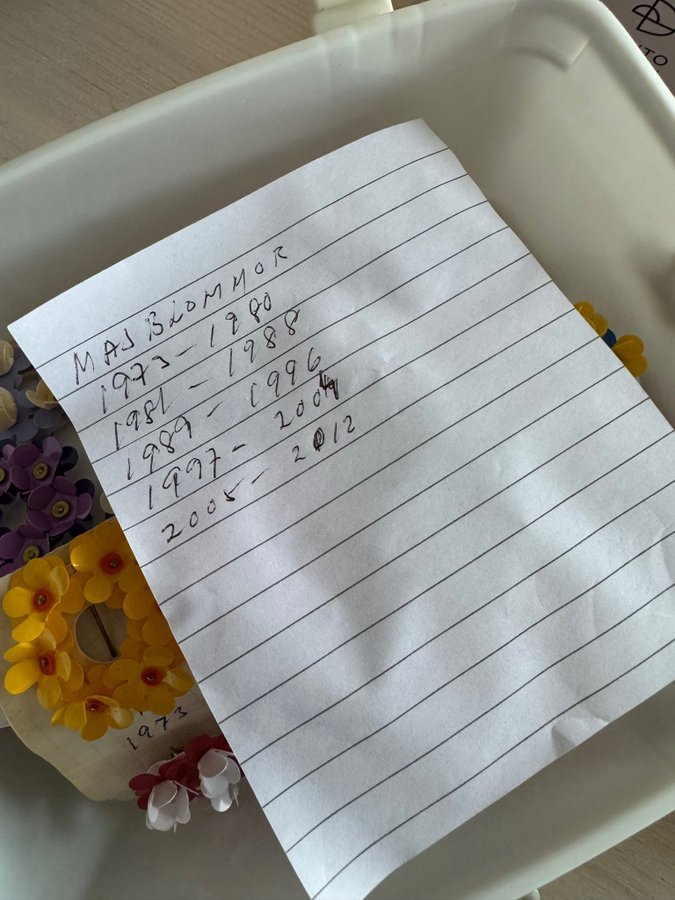 MAJBLOMMOR
1973 - 1980
1981 - 1988
1989 - 1996
1997 - 2004
2005 - 2012
1973